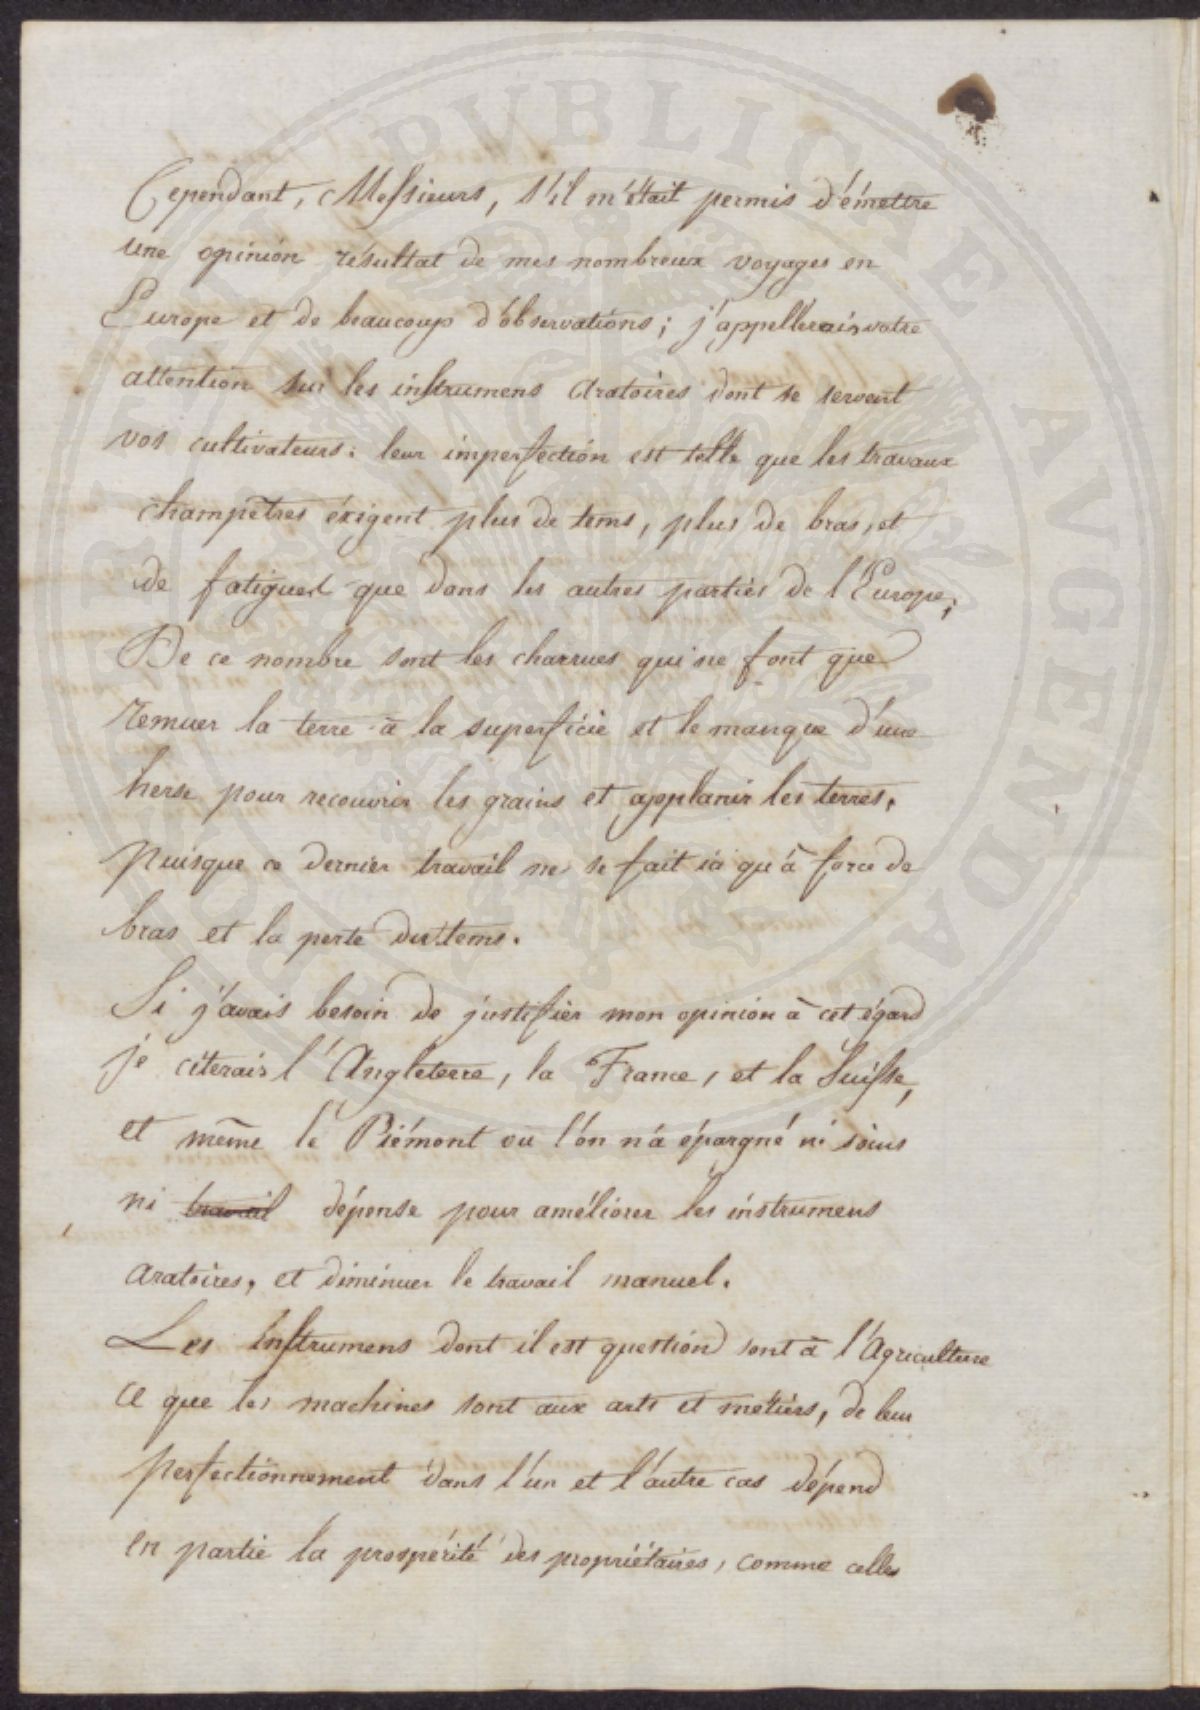 Cependant, Messieurs, s'il m'était permis d'émettre
une opinion résultat de mes nombreux voyages en
Europe et de beaucoup d'observations; j'appellerais votre
attention sur les instrumens aratoires dont se servent
vos cultivateurs: leur imperfection est telle que les travaux
champêtres éxigent plus de tems, plus de bras, et
de fatigues que dans les autres parties de l'Europe;
De ce nombre sont les charrues qui ne font que
remuer la terre à la superficie et le manque d'une
herse pour recouvrir les grains et applanir les terres,
puisque ce dernier travail ne se fait ici qu'à force de
bras et la perte du tems.
Si j'avais besoin de justifier mon opinion à cet égard
je citerais l'Angleterre, la France, et la Suisse,
et même le Piémont où l'on n'a épargné ni soins
ni travail dépense pour améliorer les instrumens
aratoires, et diminuer le travail manuel.
Les Instrumens dont il est question sont à l'Agriculture
ce que les machines sont aux arts et métiers, de leur
perfectionnement dans l'un et l'autre cas dépend
en partie la prospérité des propriétaires, comme celles
PVBLICAE AVGENDAE